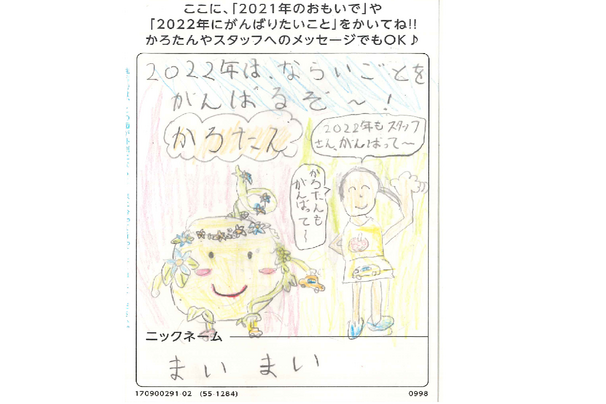 ここに、「2021年のおもいで」や
「2022年にがんばりたいこと」をかいてね!!
かろたんやスタッフへのメッセージでもOK♪
2022年は、ならいごとを
がんばるぞ〜!
かろたん
2022年もスタッフ
さん、がんばって〜
かろたんも
がんばって〜
ニックネーム
まい まい
170900291-02 (55-1284)
0998